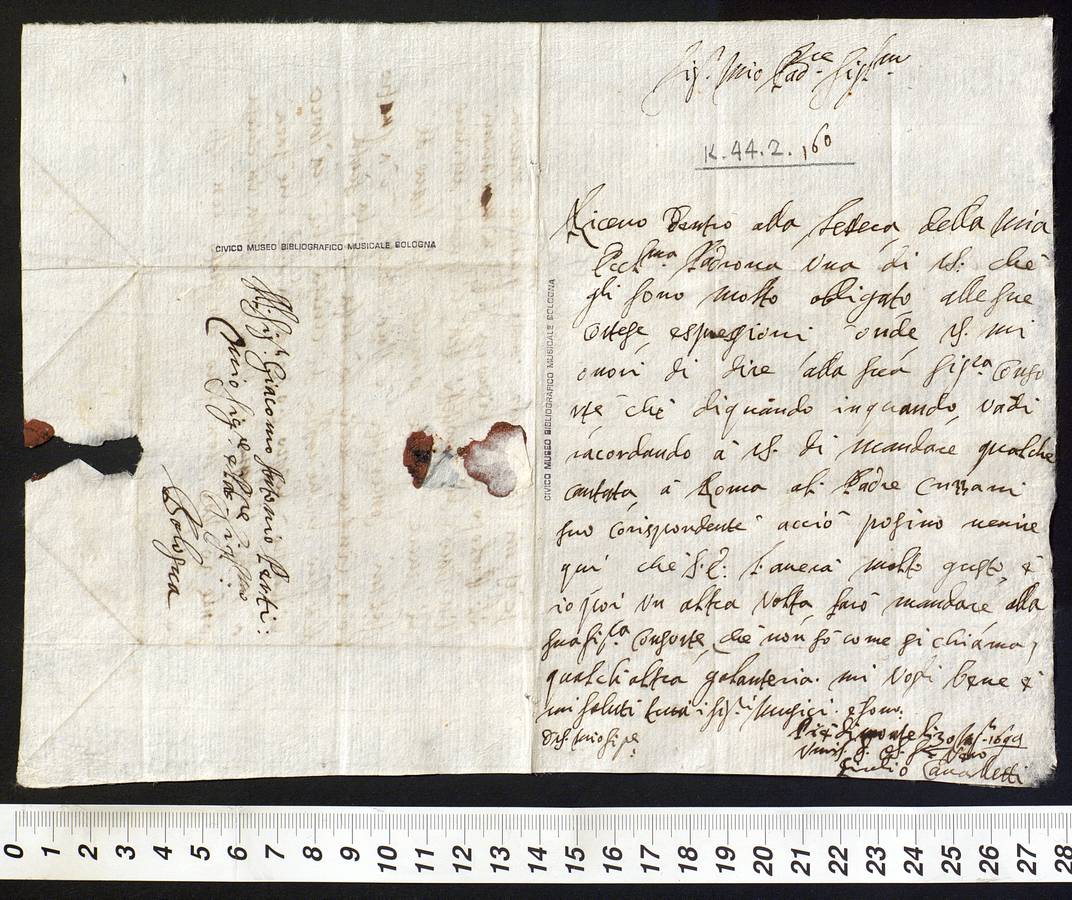 Sig.r Mio Pad.ne Sig.re
K. 44. 2. 160
Riceuo dentro alla lettera della mia
Ecc.ma Padrona una di VS. che
gli sono molto obligato alle sue
cortese espressioni onde VS. mi
onori di dire alla sua Sig.ra Conso
rte che di quando in quando, vadi
racordando à VS. di mandare qualche
cantata à Roma al Padre
suo Corispondente acciò posino uenire
qui che S. E. l'auerà molto gusto, e
io poi un altra uolta farò mandare alla
sua Sig.ra Consorte, che non sò come si chiama,
qualch altra galanteria. mi uogli bene e
mi saluti tutti i sig.ri Musici. e sono.
1694
Giulio Cavalletti
Al Sig.r Giacomo Antonio Perti:
Bologna
CIVICO MUSEO BIBLIOGRAFICO MUSICALE BOLOGNA
CIVICO MUSEO BIBLIOGRAFICO MUSICALE BOLOGNA
0 1 2 3 4 5 6 7 8 9 10 11 12 13 14 15 16 17 18 19 20 21 22 23 24 25 26 27 28